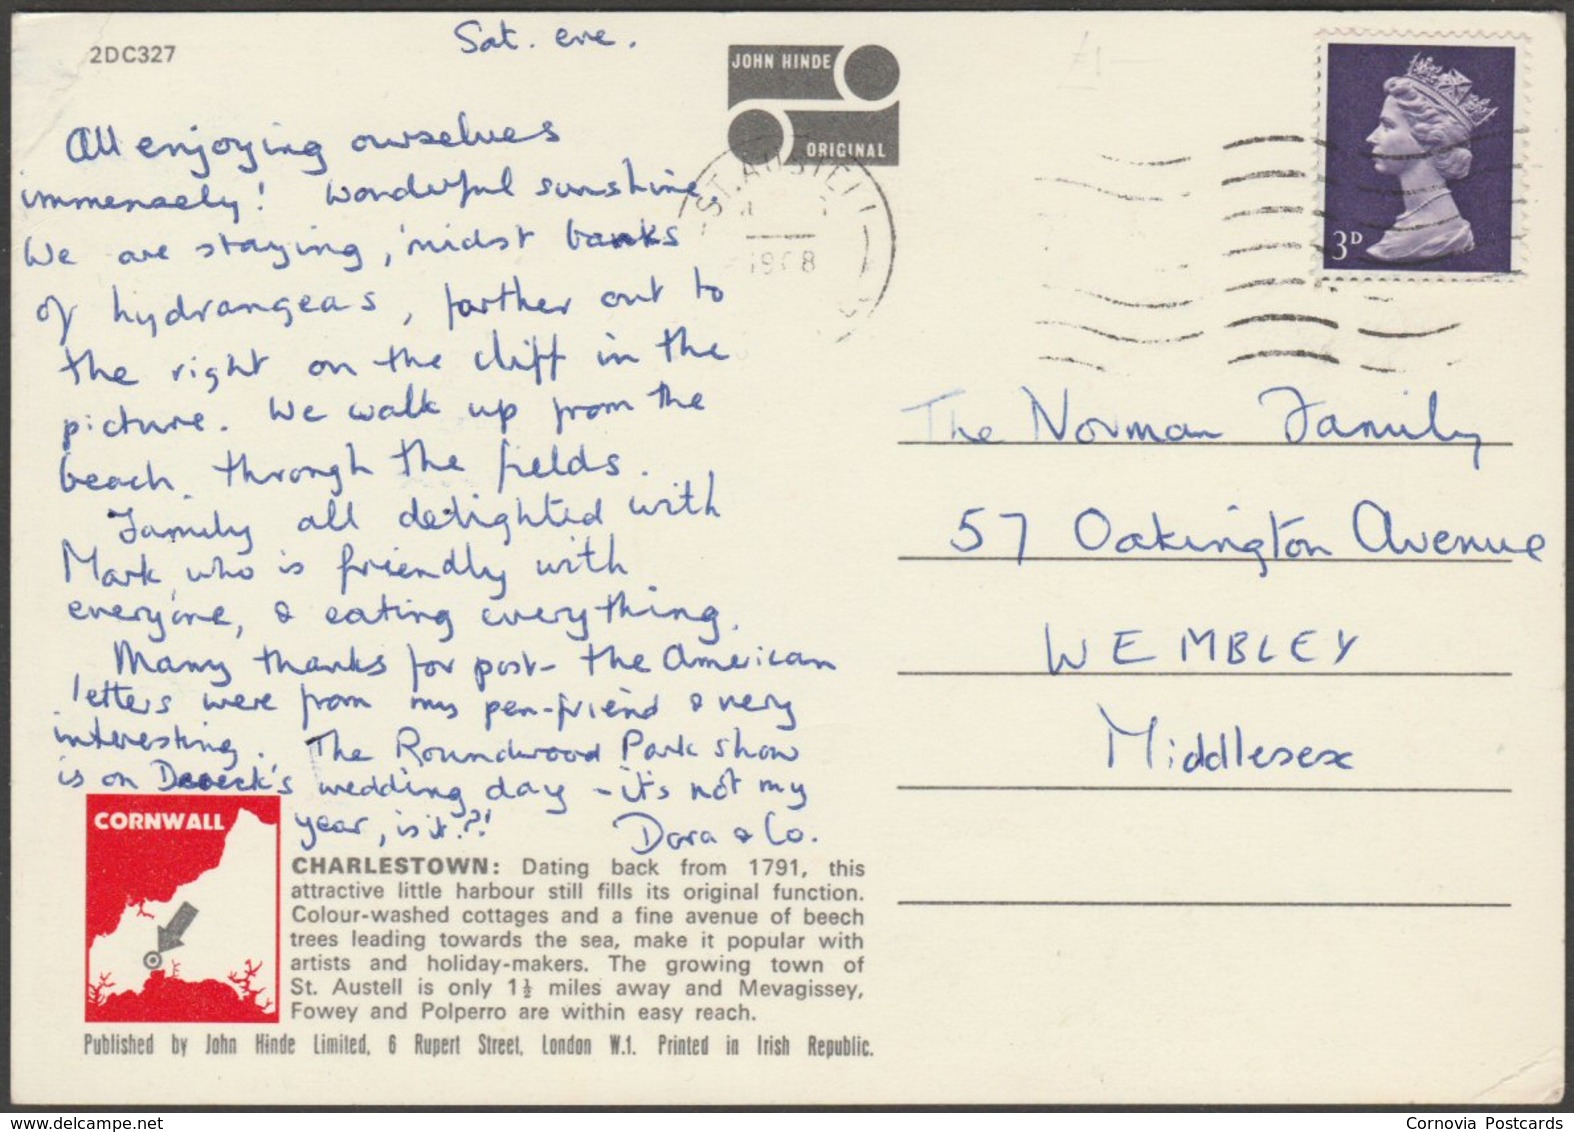 2DC327
Sat. eve.
JOHN HINDE
ORIGINAL
All enjoying ourselves
immensely! Wonderful sunshine.
We are staying, 'midst banks
of hydrangeas, farther out to
the right on the cliff in the
picture. We walk up from the
beach through the fields.
Family all delighted with
Mark, who is friendly with
everyone, & eating everything.
Many thanks for post - the American
letters were from my pen-friend & very
interesting. The Roundwood Park show
is on wedding day - it's not my
year, is it?! Dora & Co.
ST. AUSTELL
1968
3D
The Norman Family
57 Oakington Avenue
WEMBLEY
Middlesex
CORNWALL
CHARLESTOWN: Dating back from 1791, this
attractive little harbour still fills its original function.
Colour-washed cottages and a fine avenue of beech
trees leading towards the sea, make it popular with
artists and holiday-makers. The growing town of
St. Austell is only 1½ miles away and Mevagissey,
Fowey and Polperro are within easy reach.
Published by John Hinde Limited, 6 Rupert Street, London W.1. Printed in Irish Republic.
Cornovia Postcards
delcampe.net